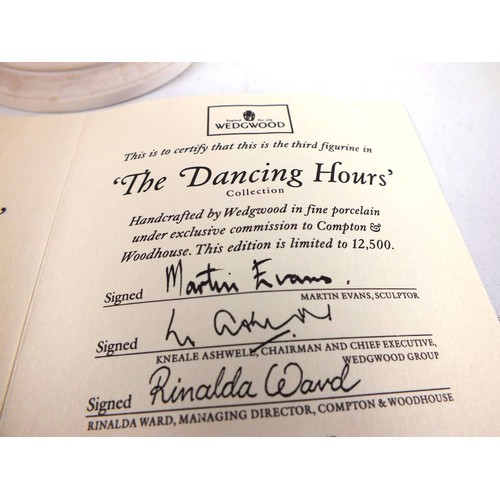 WEDGWOOD
This is to certify that this is the third figurine in
'The Dancing Hours'
Collection
Handcrafted by Wedgwood in fine porcelain
under exclusive commission to Compton &
Woodhouse. This edition is limited to 12,500.
Signed Martin Evans.
MARTIN EVANS, SCULPTOR
Signed
KNEALE ASHWELL, CHAIRMAN AND CHIEF EXECUTIVE,
WEDGWOOD GROUP
Signed Rinalda Ward
RINALDA WARD, MANAGING DIRECTOR, COMPTON & WOODHOUSE